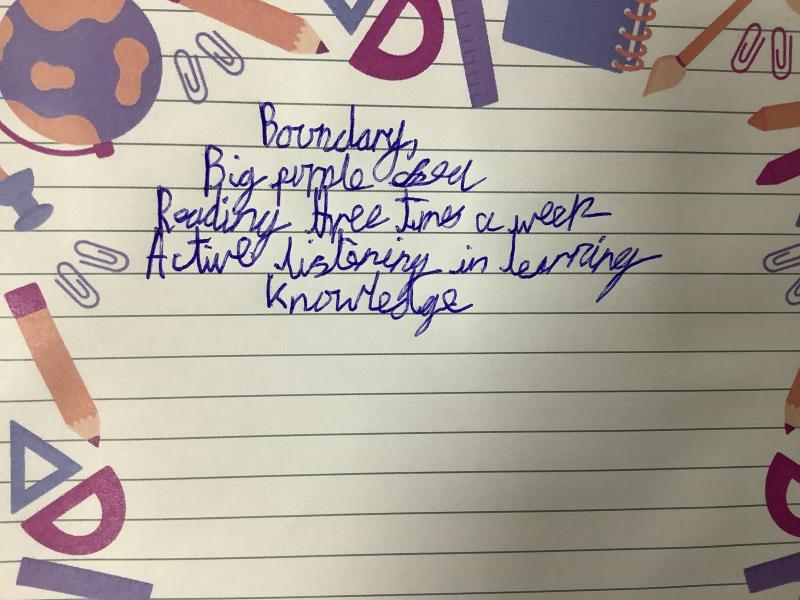 Boundary,
Big purple
Reading three times a week
Active listening in learning
Knowledge